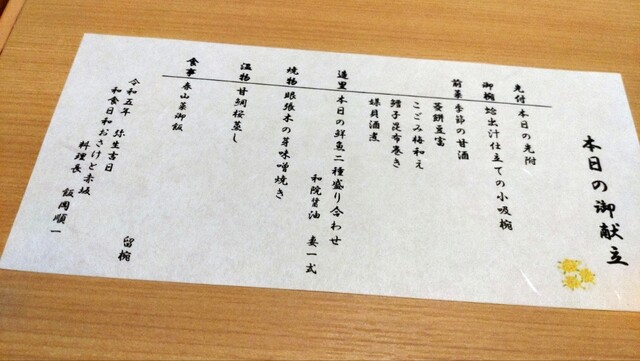 本日の御献立
先付 本日の先附
御椀 蛤出汁仕立ての小吸椀
前菜 季節の甘酒
蚕餅豆富
こごみ梅和え
鱈子昆布巻き
媒貝酒煮
造里 本日の鮮魚二種盛り合わせ
和院醤油 妻一式
焼物 眼張木の芽味噌焼き
温物 甘鯛桜蒸し
食事 春山菜御飯
留椀
令和五年 弥生吉日
和食日和おさけと赤坂
料理長 飯岡順一